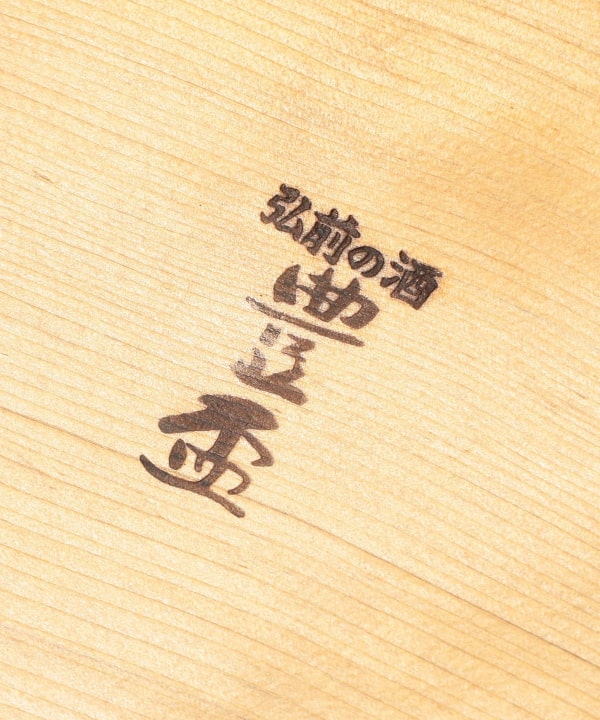 弘前の酒
豊盃